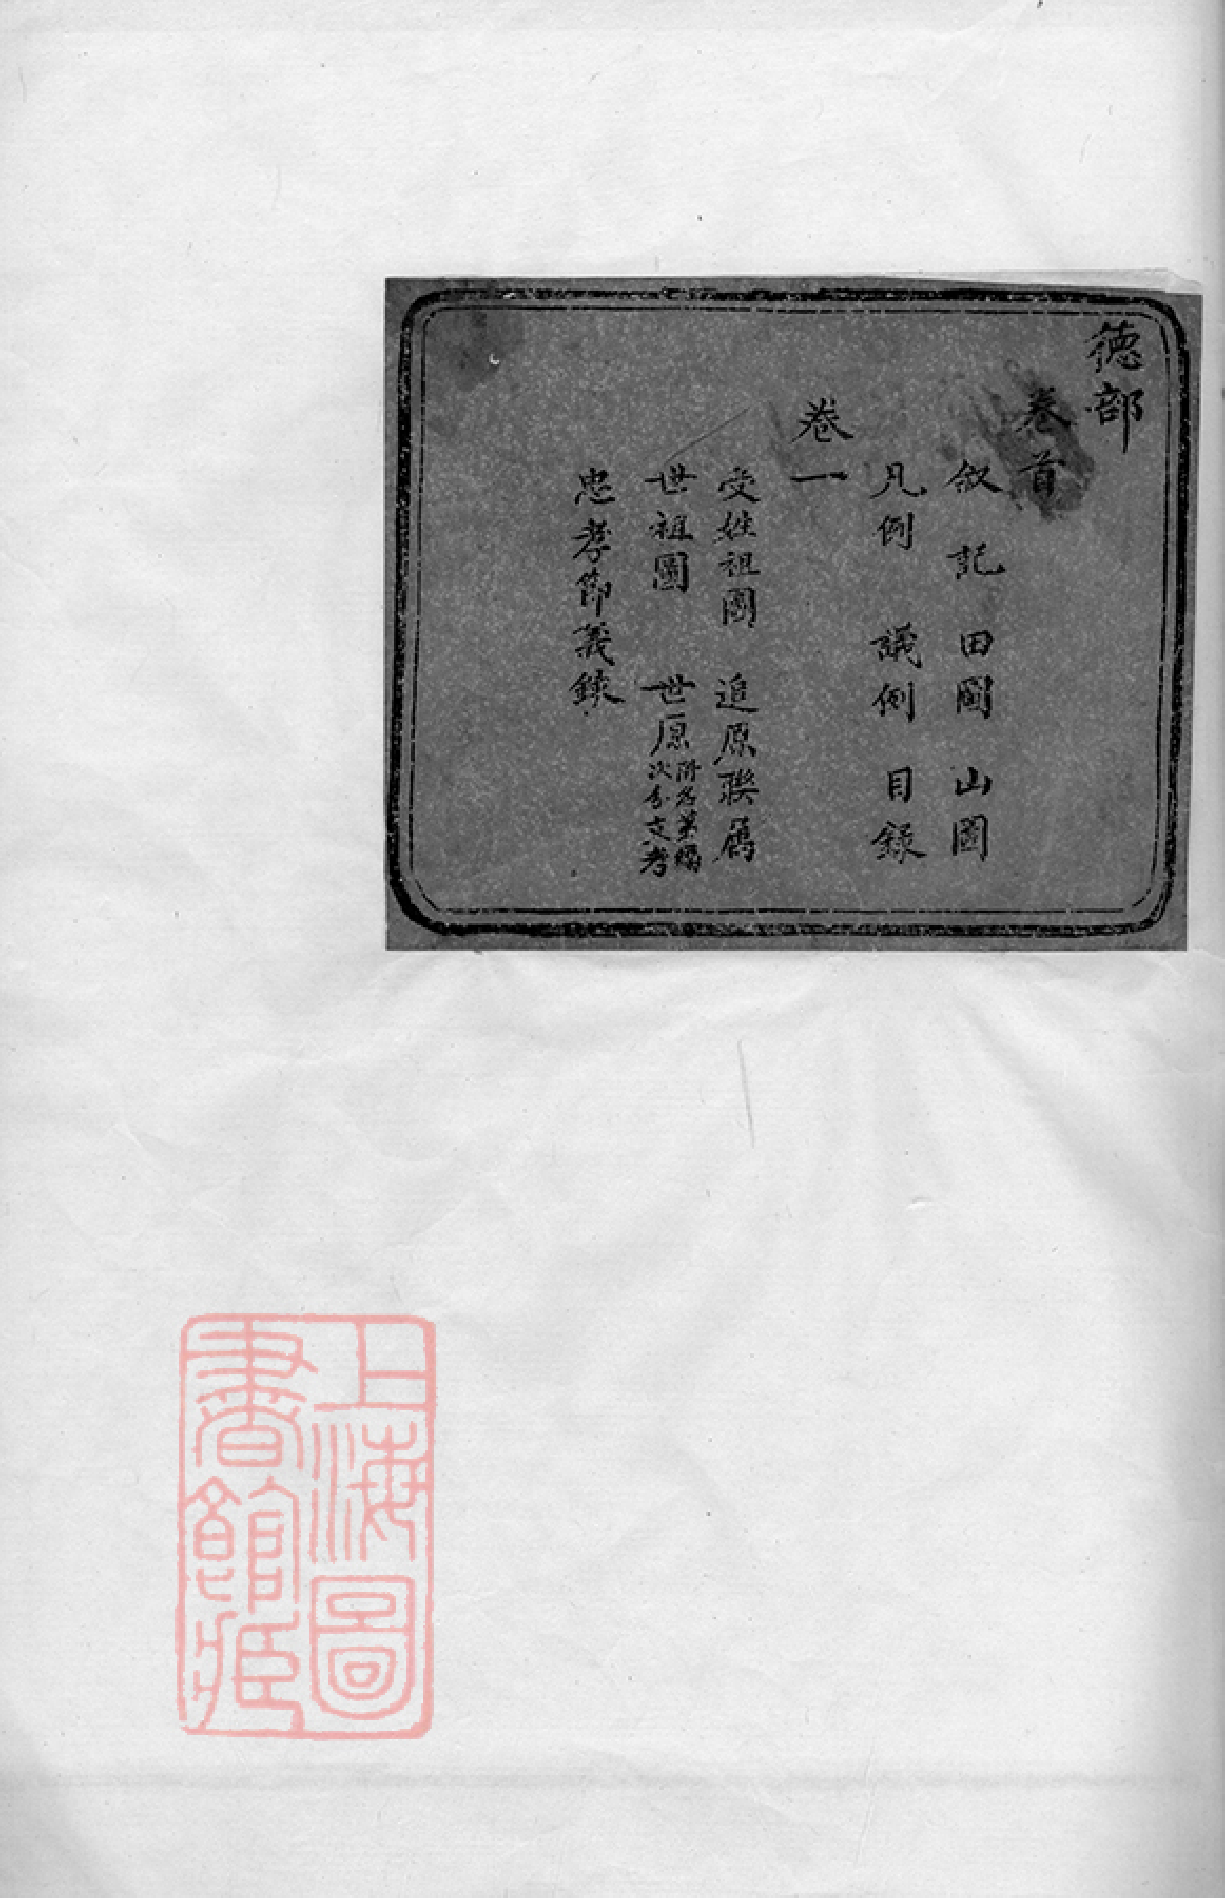 德部
卷首
叙 記 田圖 山圖
凡例 議例 目錄
卷一
受姓祖圖 追原聯屬
世祖圖 世原
附名第編
次分支考
忠孝節義錄
上海圖
書館藏